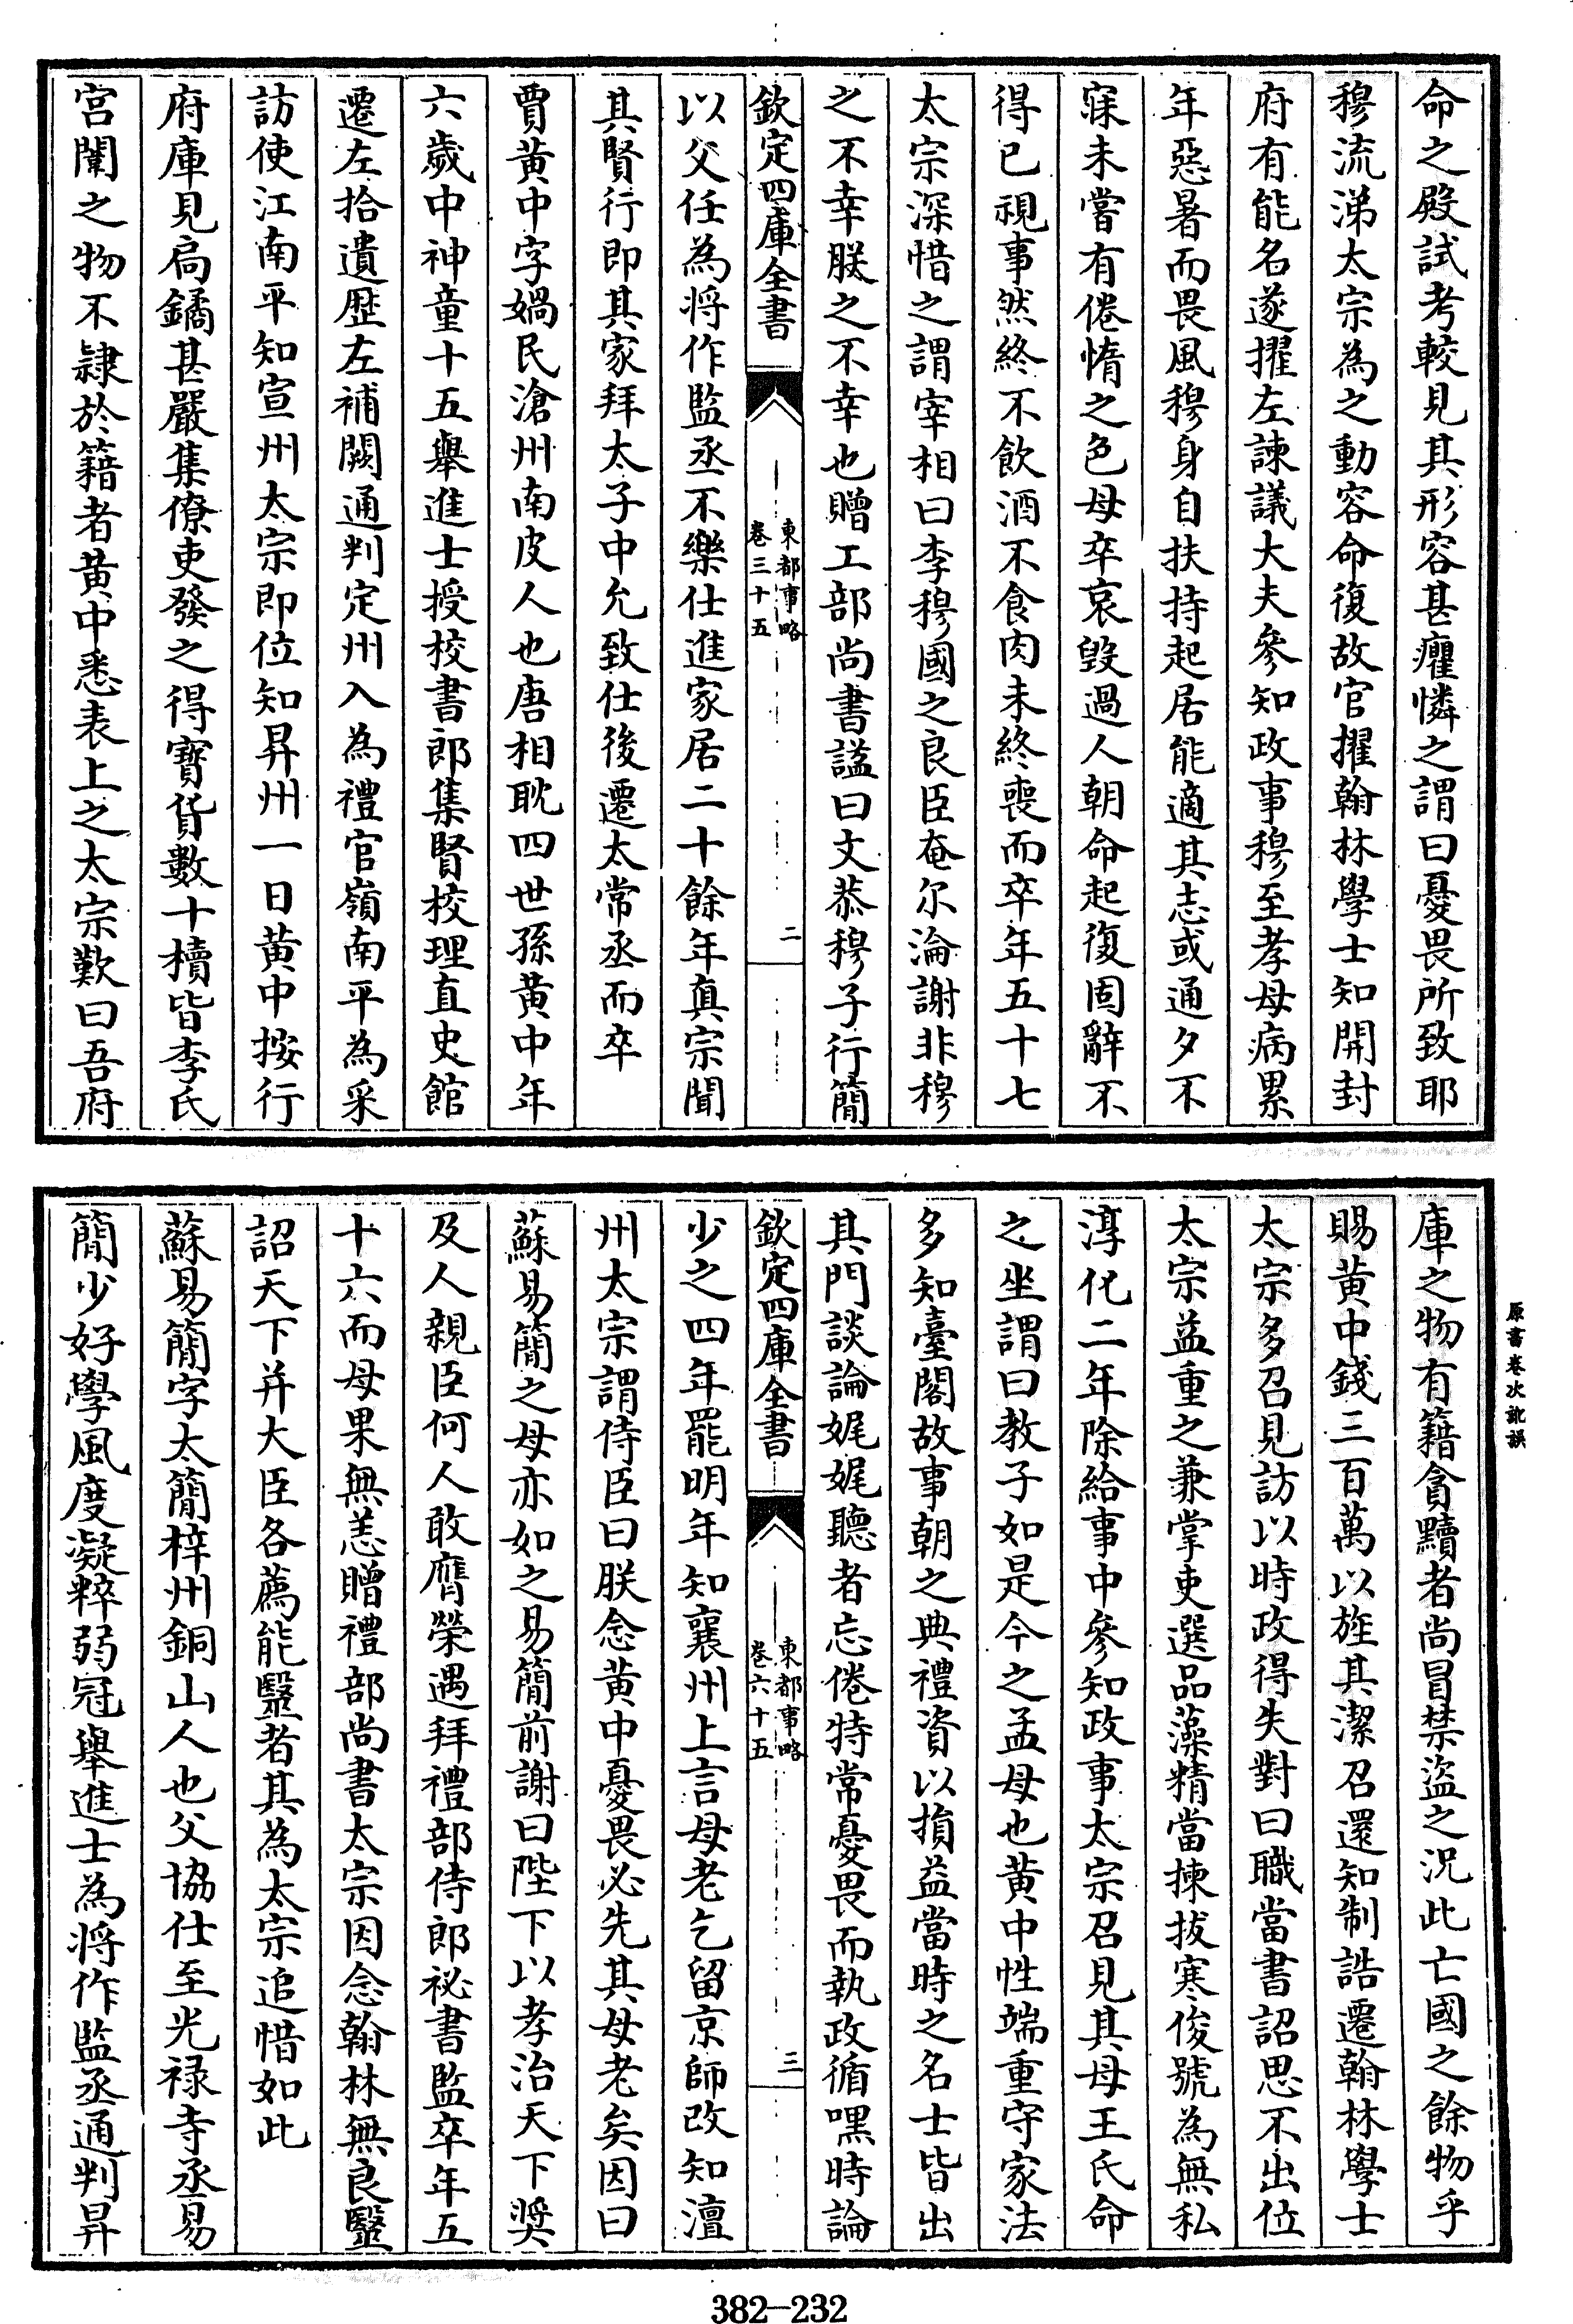 命之殿試考較見其形容甚癯憐之謂曰憂畏所致耶
穆流涕太宗為之動容命復故官擢翰林學士知開封
府有能名遂擢左諫議大夫參知政事穆至孝母病累
年惡暑而畏風穆身自扶持起居能適其志或通夕不
寐未嘗有倦惰之色母卒哀毀過人朝命起復固辭不
得已視事然終不飲酒不食肉未終喪而卒年五十七
太宗深惜之謂宰相曰李穆國之良臣奄尔淪謝非穆
之不幸朕之不幸也贈工部尚書諡曰文恭穆子行簡
欽定四庫全書
東都事略
卷三十五
二
以父任為將作監丞不樂仕進家居二十餘年真宗聞
其賢行即其家拜太子中允致仕後遷太常丞而卒
賈黃中字媧民滄州南皮人也唐相耽四世孫黃中年
六歲中神童十五舉進士授校書郎集賢校理直史館
遷左拾遺歷左補闕通判定州入為禮官嶺南平為采
訪使江南平知宣州太宗即位知昇州一日黃中按行
府庫見扃鐍甚嚴集僚吏發之得寶貨數十櫝皆李氏
宮闈之物不隷於籍者黃中悉表上之太宗歎曰吾府
原書卷次訛誤
庫之物有籍貪黷者尚冒禁盜之況此亡國之餘物乎
賜黃中錢三百萬以旌其潔召還知制誥遷翰林學士
太宗多召見訪以時政得失對曰職當書詔思不出位
太宗益重之兼掌吏選品藻精當揀拔寒俊號為無私
淳化二年除給事中參知政事太宗召見其母王氏命
之坐謂曰教子如是今之孟母也黃中性端重守家法
多知臺閣故事朝之典禮資以損益當時之名士皆出
其門談論娓娓聽者忘倦特常憂畏而執政循嘿時論
欽定四庫全書
東都事略
卷六十五
三
少之四年罷明年知襄州上言母老乞留京師改知澶
州太宗謂侍臣曰朕念黃中憂畏必先其母老矣因曰
蘇易簡之母亦如之易簡前謝曰陛下以孝治天下奬
及人親臣何人敢膺榮遇拜禮部侍郎祕書監卒年五
十六而母果無恙贈禮部尚書太宗因念翰林無良醫
詔天下并大臣各薦能醫者其為太宗追惜如此
蘇易簡字太簡梓州銅山人也父協仕至光禄寺丞易
簡少好學風度凝粹弱冠舉進士為將作監丞通判昇
382—232